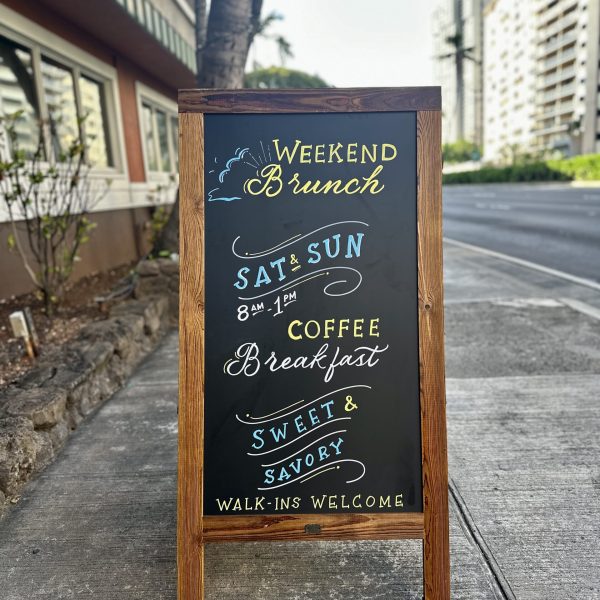 WEEKEND
Brunch
SAT & SUN
8AM-1PM
COFFEE
Breakfast
SWEET &
SAVORY
WALK-INS WELCOME